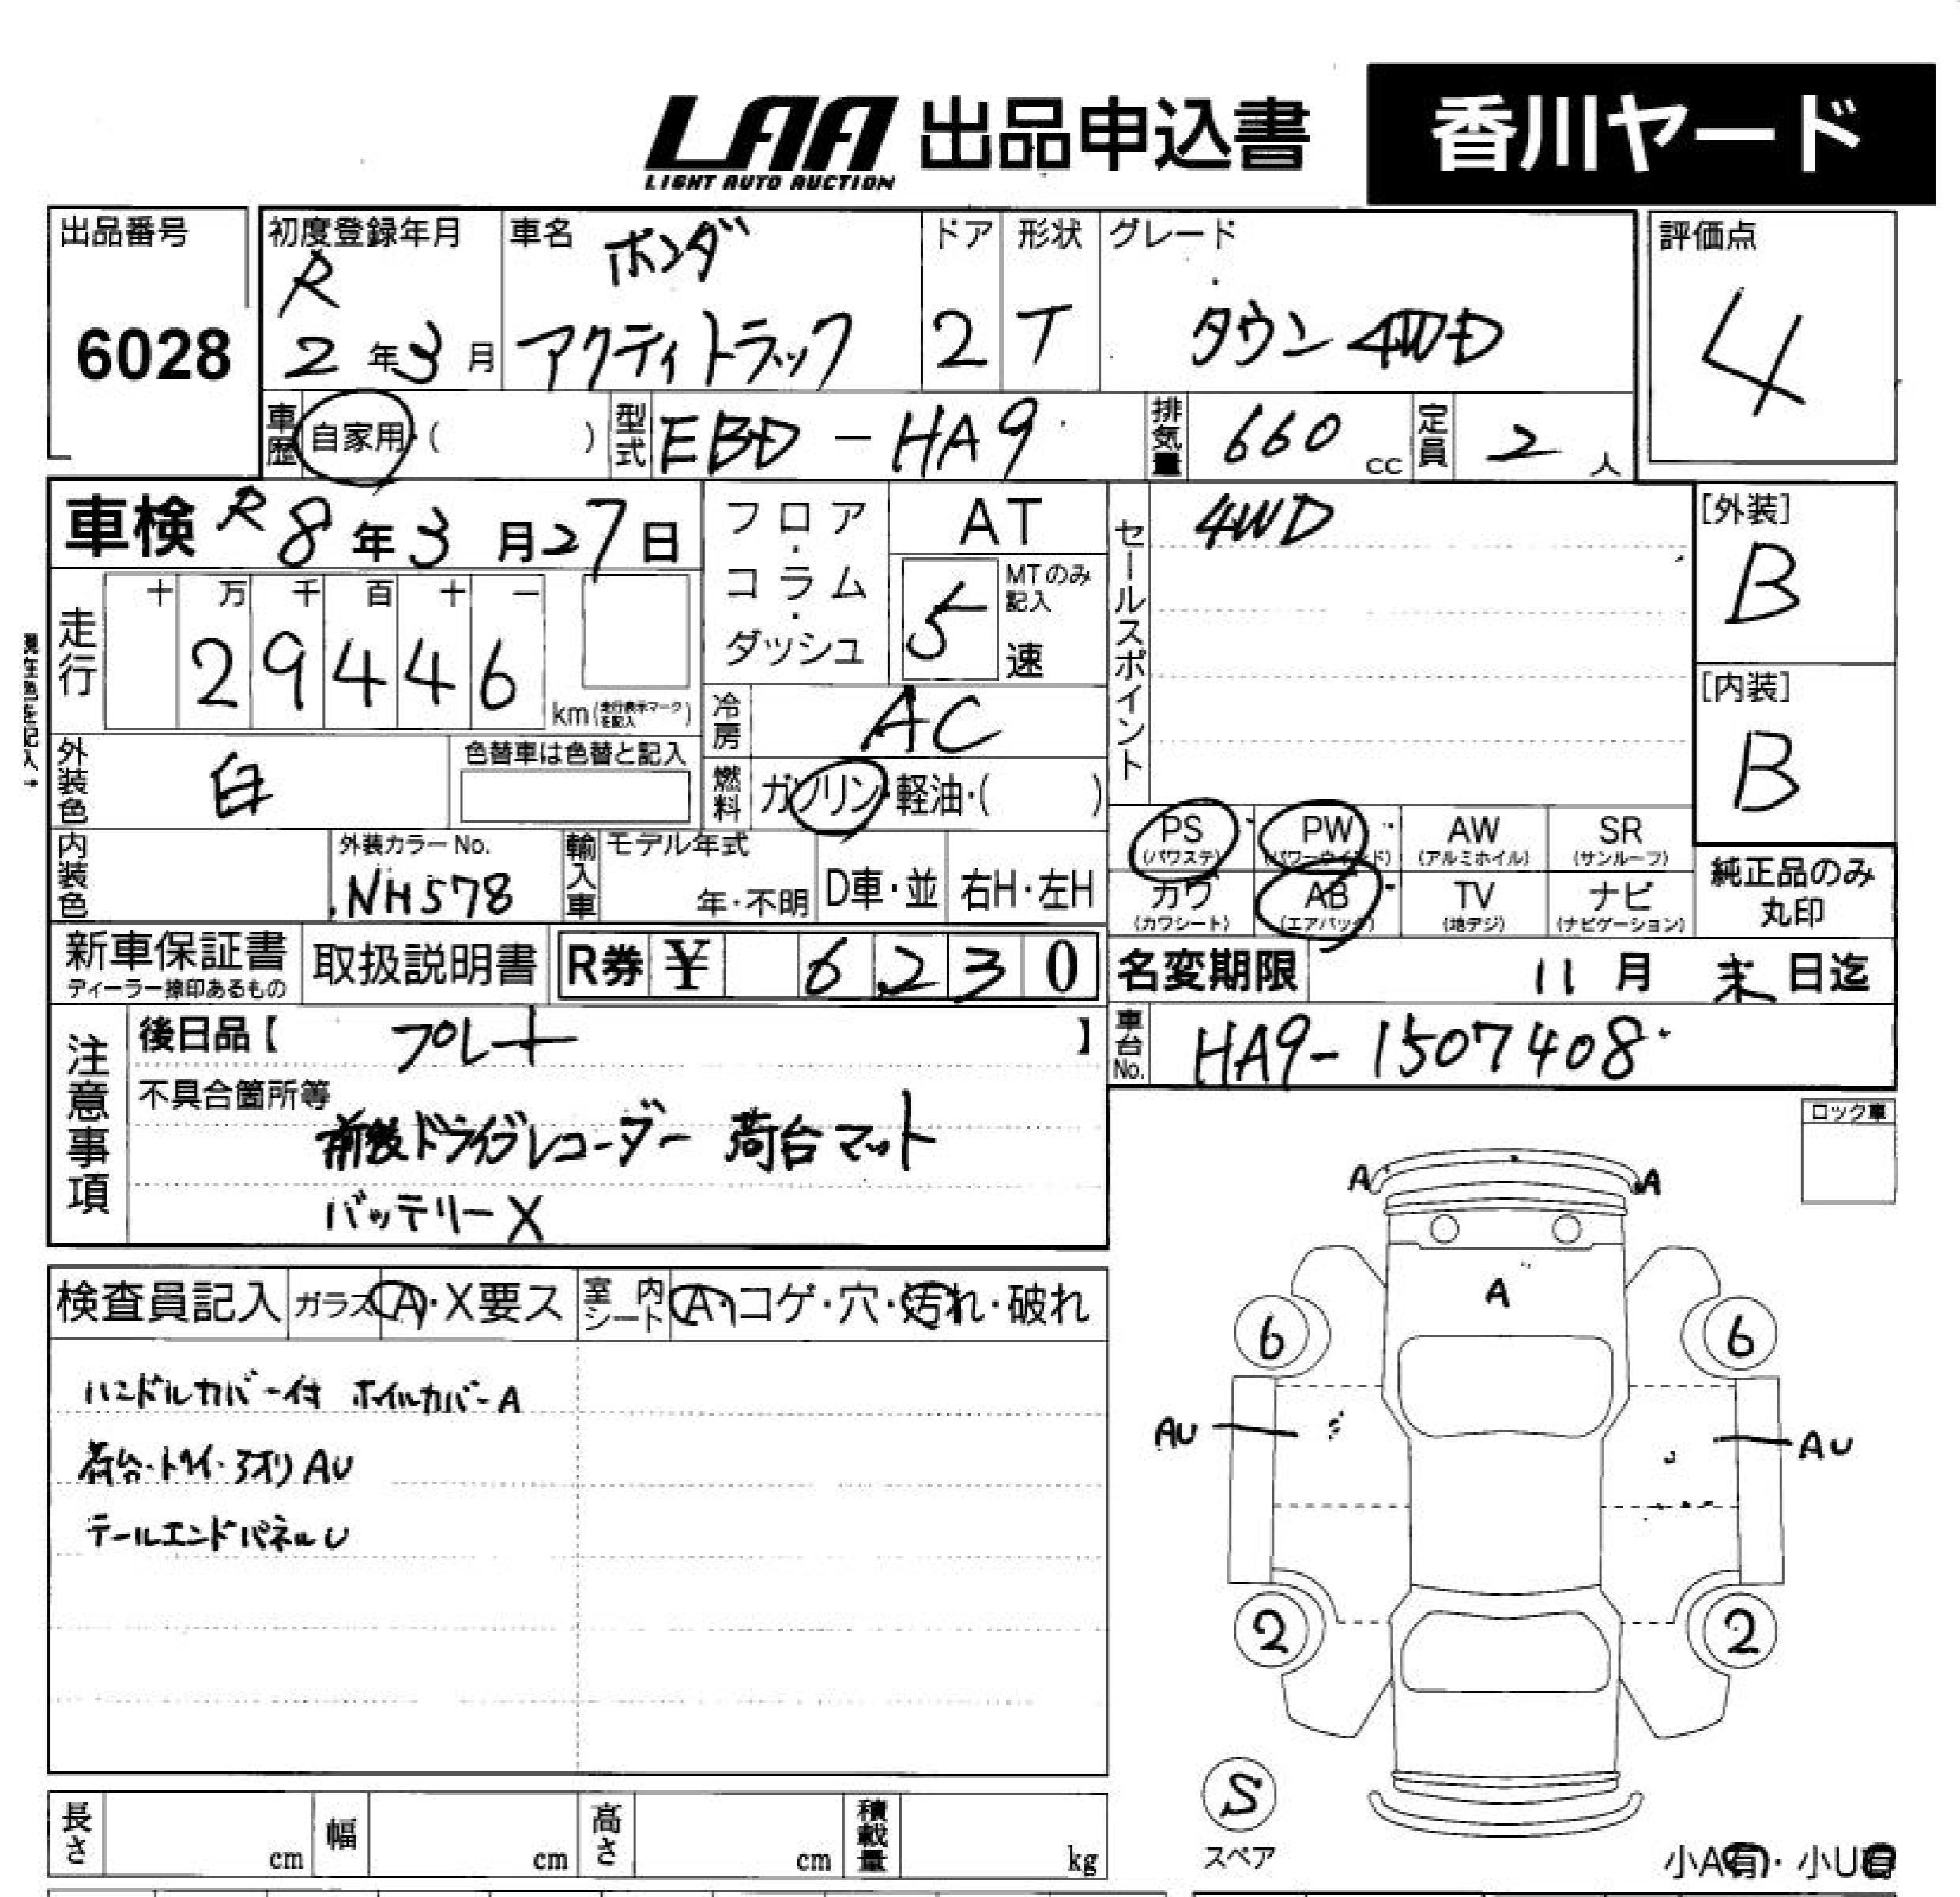 LAA 出品申込書 香川ヤード
LIGHT AUTO AUCTION
出品番号 初度登録年月 車名 ホンダ ドア 形状 グレード 評価点
6028 R 2年3月 アクティトラック 2 T タウン 4WD 4
車歴 自家用・( ) 型式 EBD-HA9 排気量 660 cc 定員 2 人
車検 R8年3月27日 フロア・コラム・ダッシュ AT 5 MTのみ記入 速
セールスポイント 4WD
[外装] B
走行 十 万 千 百 十 一
29446 km(走行表示マークを記入)
現在色を記入→
冷房 AC
[内装] B
外装色 白 色替車は色替と記入
燃料 ガソリン・軽油・( )
PS (パワステ) PW (パワーウインド) AW (アルミホイル) SR (サンルーフ)
内装色 外装カラーNo. NH578 輸入車 モデル年式 年・不明 D車・並 右H・左H
カワ (カワシート) AB (エアバッグ) TV (地デジ) ナビ (ナビゲーション)
純正品のみ
丸印
新車保証書 ディーラー捺印あるもの 取扱説明書 R券 ¥ 6,230 名変期限 11月末日迄
注意事項 後日品【 プレート 】
車台No. HA9-1507408
不具合箇所等
前後ドライブレコーダー 荷台マット
バッテリーX
ロック車
A A
A
6 6
AU AU
2 2
検査員記入 ガラス A・X要ス 室内シート A・コゲ・穴・汚れ・破れ
ハンドルカバー付 ホイルカバーA
荷台・トリイ・アオリ AU
テールエンドパネルU
S
スペア
長さ cm 幅 cm 高さ cm 積載量 kg
小A有・小U有